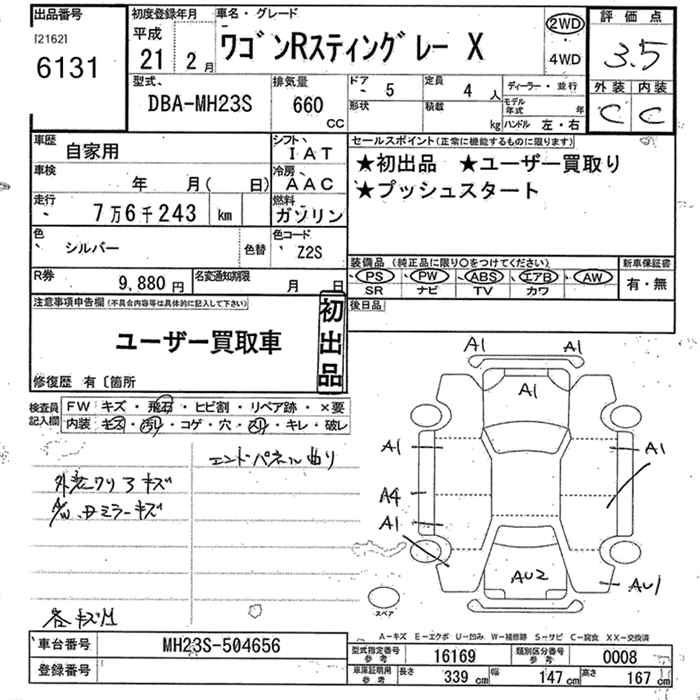 出品番号 初度登録年月 車名・グレード 評価点
[2162] 平成
6131 21年 2月 ワゴンRスティングレー X 2WD 3.5
4WD
型式 排気量 ドア 5 定員 4人 ディーラー・並行 外装 内装
DBA-MH23S 660 CC 形状 積載 kg モデル年式 年 C C
ハンドル 左・右
車歴 自家用 シフト IAT セールスポイント(正常に機能するものに限ります)
車検 年 月( 日) 冷房 AAC ★初出品 ★ユーザー買取り
走行 7万6千243 km 燃料 ガソリン ★プッシュスタート
色 シルバー 色替 色コード Z2S
装備品 (純正品に限り○をつけてください) 新車保証書
R券 9,880円 名変通知期限 月 日 PS PW ABS エアB AW 有・無
SR ナビ TV カワ
注意事項申告欄(不具合内容等は具体的に記入して下さい) 初出品 後日品
ユーザー買取車
修復歴 有〔箇所
検査員記入欄 FW キズ・飛石・ヒビ割・リペア跡・×要
内装 キズ・汚れ・コゲ・穴・スリ・キレ・破レ
エンドパネル曲り
キズ
ミラーキズ
A1 A1
A1
A1 A1
A4
A1
AU2 AU1
スペア
A-キズ E-エクボ U-凹み W-補修跡 S-サビ C-腐食 XX-交換済
車台番号 MH23S-504656 型式指定番号 参考 16169 類別区分番号 参考 0008
登録番号 車庫証明用 参考 長さ 339 cm 幅 147 cm 高さ 167 cm